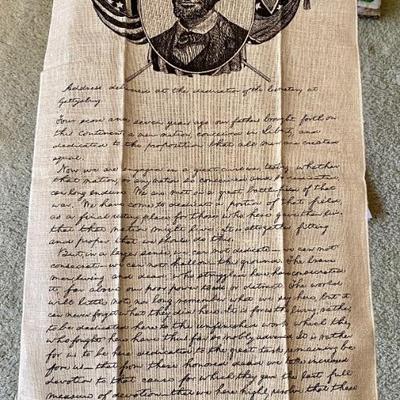 Address delivered at the dedication of the Cemetery at
Gettysburg.
Four score and seven years ago our fathers brought forth on
this continent a new nation, conceived in Liberty, and
dedicated to the proposition that all men are created
equal.
Now we are engaged in a great civil war, testing whether
that nation, or any nation so conceived and so dedicated,
can long endure. We are met on a great battle-field of that
war. We have come to dedicate a portion of that field,
as a final resting place for those who here gave their lives
that that nation might live. It is altogether fitting
and proper that we should do this.
But, in a larger sense, we can not dedicate—we can not
consecrate—we can not hallow—this ground. The brave
men, living and dead, who struggled here have consecrated
it, far above our poor power to add or detract. The world
will little note, nor long remember what we say here, but it
can never forget what they did here. It is for us the living, rather,
to be dedicated here to the unfinished work which they
who fought here have thus far so nobly advanced. It is rather
for us to be here dedicated to the great task remaining be-
fore us—that from these honored dead we take increased
devotion to that cause for which they gave the last full
measure of devotion—that we here highly resolve that these